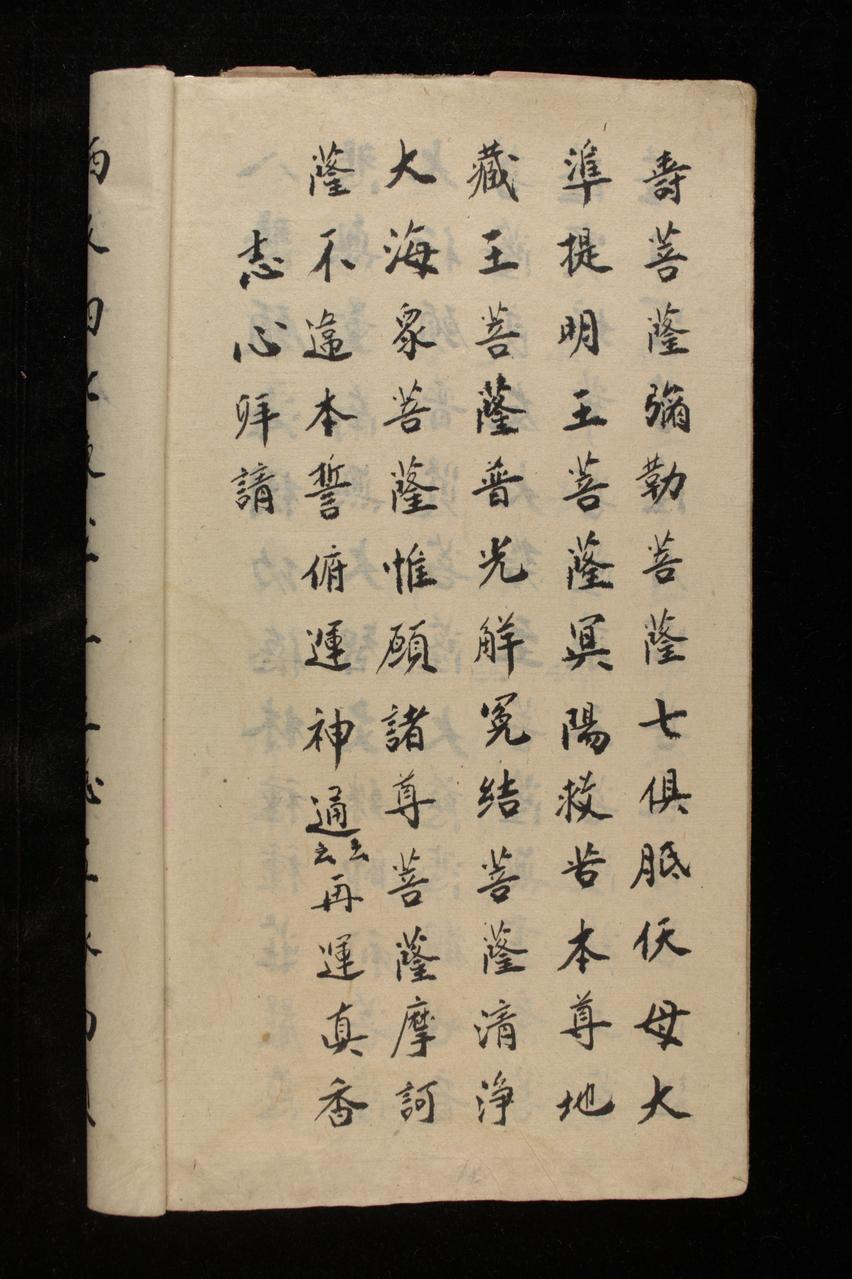 壽菩薩彌勒菩薩七俱胝仸母大
準提明王菩薩冥陽救苦本尊地
藏王菩薩普光觧冤結菩薩清淨
大海眾菩薩惟願諸尊菩薩摩訶
薩不違本誓俯運神通云云再運真香
志心拜請